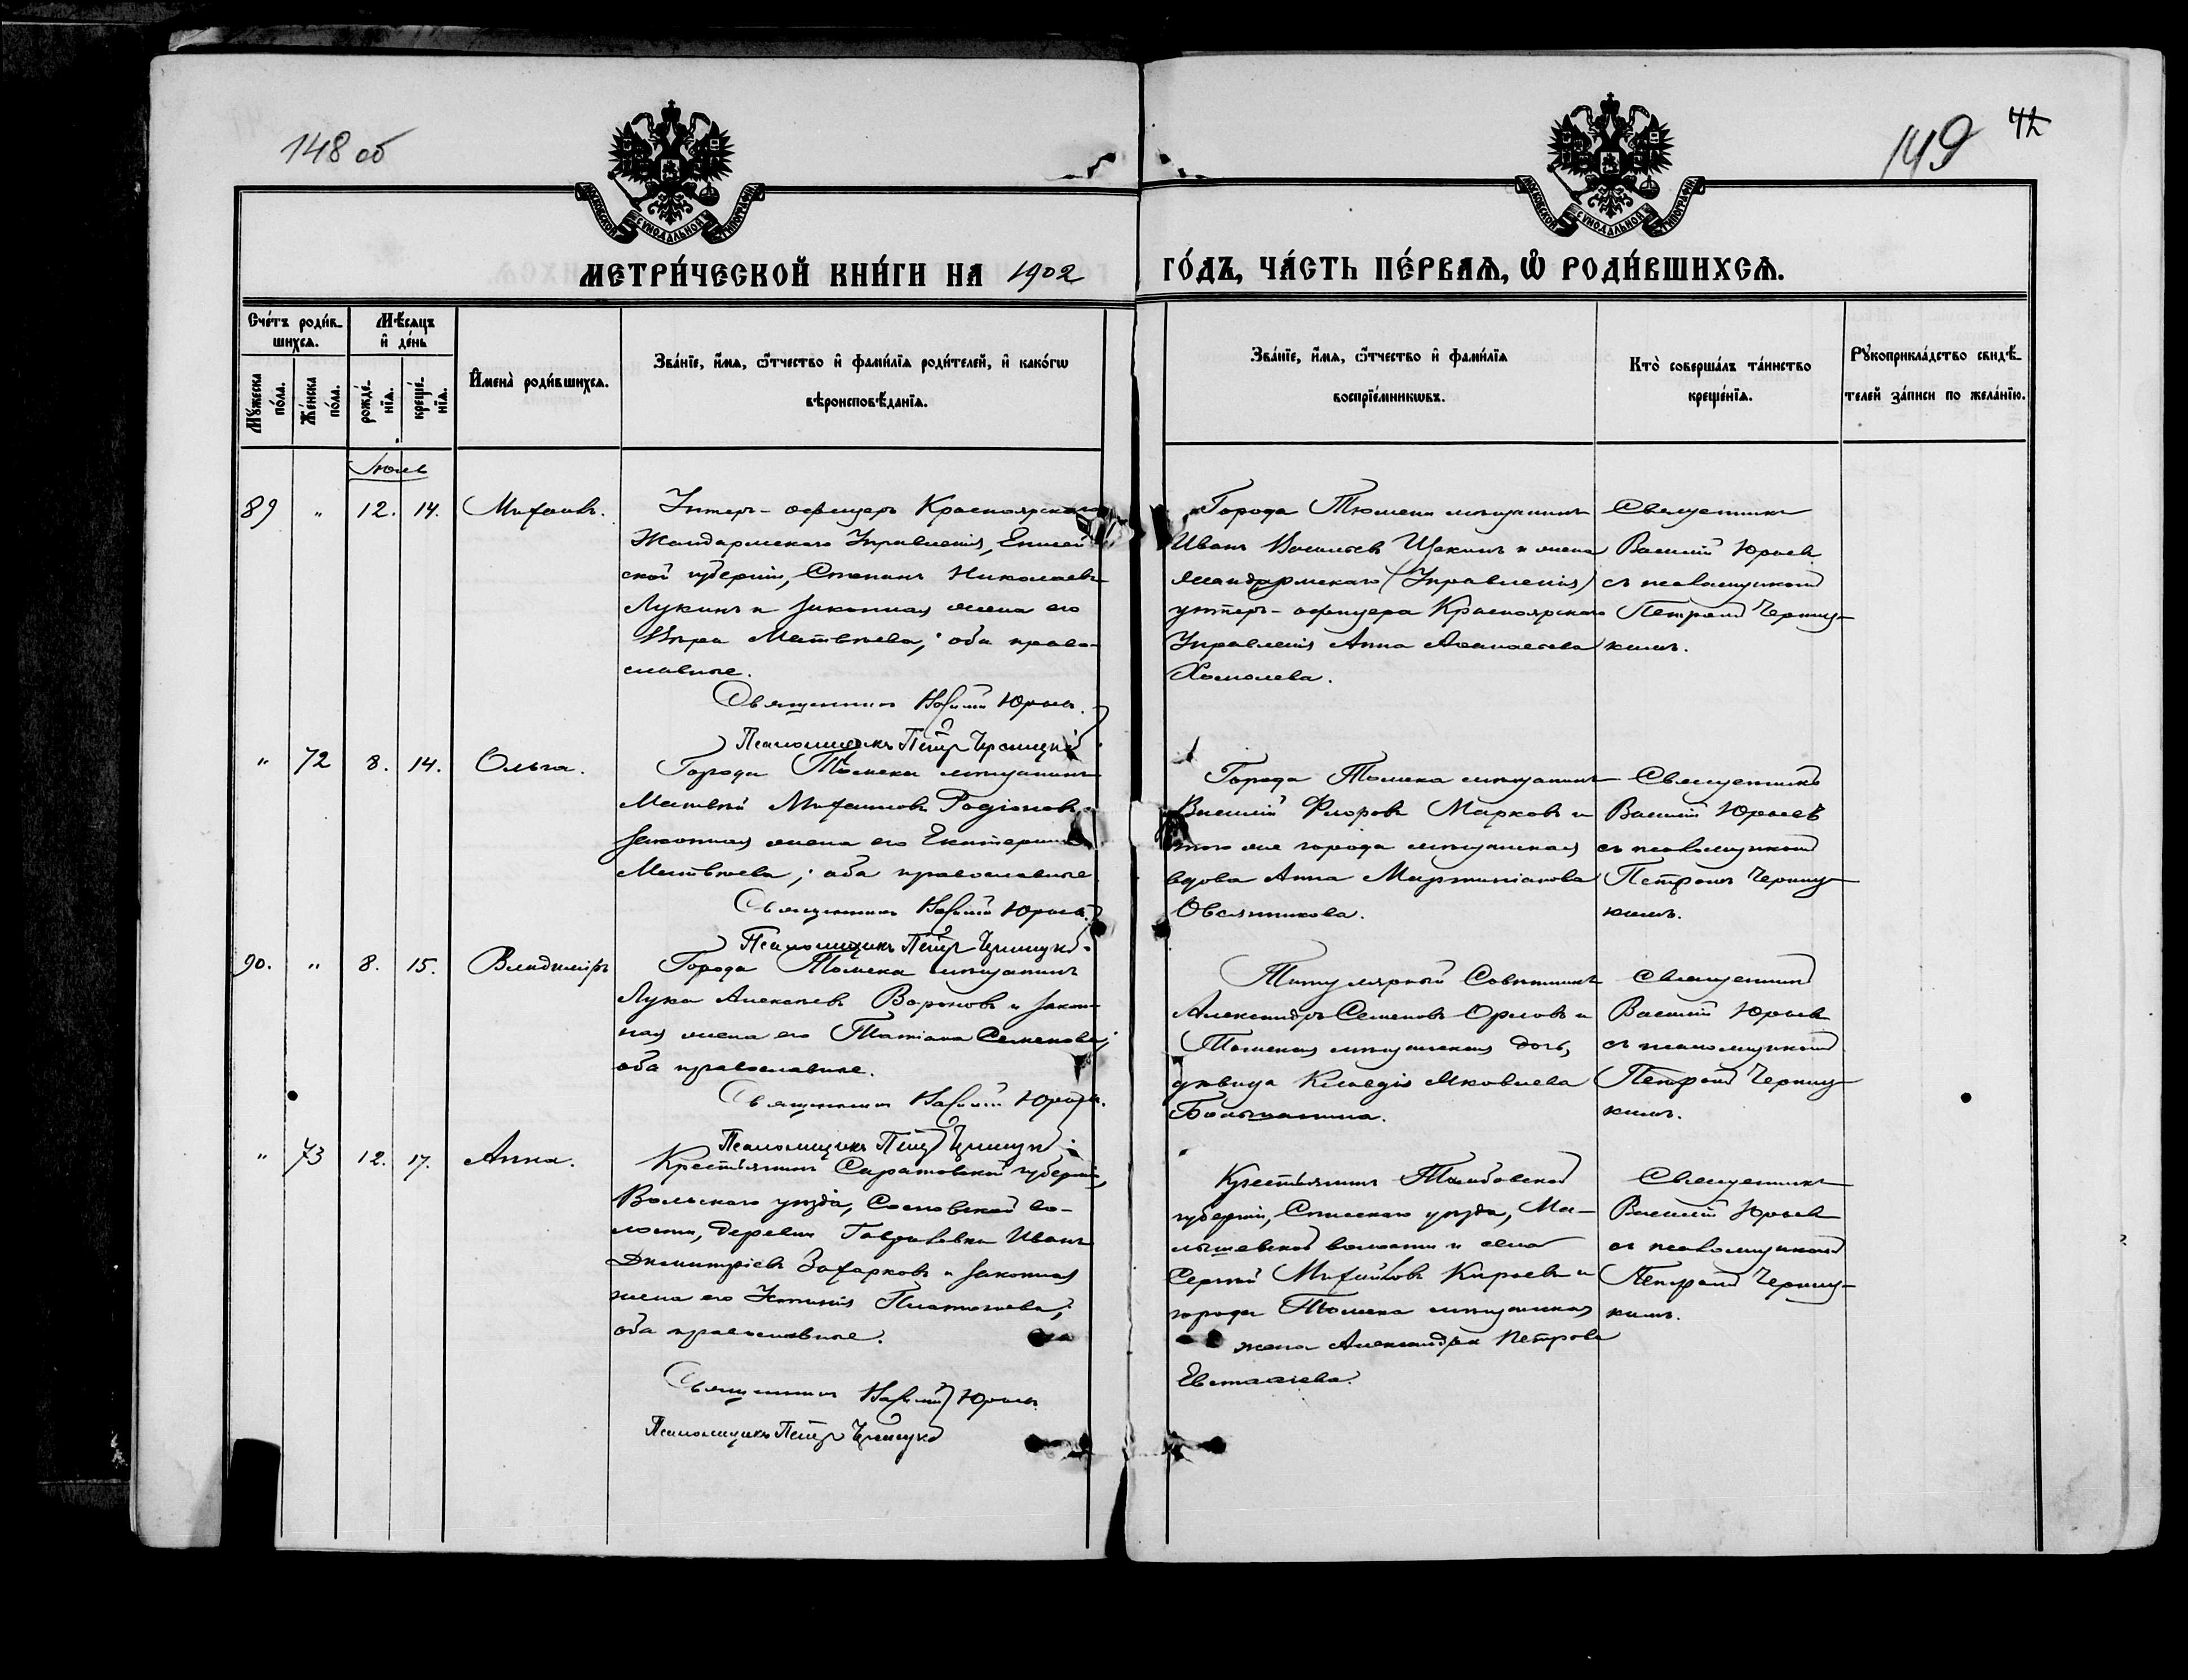 148 об
149
42
МОСКОВСКОЙ СУНОДАЛЬНОЙ ТИПОГРАФІИ.
МОСКОВСКОЙ СУНОДАЛЬНОЙ ТИПОГРАФІИ.
МЕТРИ́ЧЕСКОЙ КНИ́ГИ НА 1902 ГО́ДЪ, ЧА́СТЬ ПЕ́РВАѦ, Ѽ РОДИ́ВШИХСѦ.
Сче́тъ роди́в-
шихсѧ.
Мѣ́сѧцъ
и҆ де́нь
Мꙋ́жеска по́ла.
Же́нска по́ла.
рожде́-
нїѧ.
креще́-
нїѧ.
И҆мена̀ роди́вшихсѧ.
Зва́нїе, и҆́мѧ, ѻ҆́тчество и҆ фами́лїѧ роди́телей, и҆ како́гѡ
вѣроисповѣ́данїѧ.
Зва́нїе, и҆́мѧ, ѻ҆́тчество и҆ фами́лїѧ
воспрїе́мникѡвъ.
Кто̀ соверша́лъ та́инство
креще́нїѧ.
Рꙋкоприкла́дство свидѣ́-
телей за́писи по жела́нїю.
Іюль
89 " 12. 14. Михаилъ.
Унтеръ-офицеръ Красноярскаго
Жандармскаго Управленія, Енисей
ской губерніи, Степанъ Николаевъ
Лукинъ и законная жена его
Вѣра Матвѣева; оба право-
славные.
Священникъ Василій Юрьевъ.
Псаломщикъ Петръ Черницкій
Города Тюмени мѣщанинъ
Иванъ Васильевъ Щекинъ и жена
жандармскаго (Управленія)
унтеръ-офицера Красноярскаго
Управленія Анна Аѳанасьева
Хомолева.
Священникъ
Василій Юрьевъ
съ псаломщикомъ
Петромъ Черниц-
кимъ.
" 72 8. 14. Ольга.
Города Томска мѣщанинъ
Матвѣй Михаиловъ Родіоновъ
законная жена его Екатерина
Матвѣева; оба православные
Священникъ Василій Юрьевъ.
Псаломщикъ Петръ Черницкій.
Города Томска мѣщанинъ
Василій Флоровъ Марковъ и
того же города мѣщанская
вдова Анна Мартиніанова
Овсянникова.
Священникъ
Василій Юрьевъ
съ псаломщикомъ
Петромъ Черниц-
кимъ.
90. " 8. 15. Владиміръ
Города Томска мѣщанинъ
Лука Алексѣевъ Вороновъ и закон-
ная жена его Татіана Семенова;
оба православные.
Священникъ Василій Юрьевъ.
Псаломщикъ Петръ Черницкій.
Титулярный Совѣтникъ
Александръ Семеновъ Орловъ и
Томская мѣщанская дочь,
дѣвица Клавдія Яковлева
Большанина.
Священникъ
Василій Юрьевъ
съ псаломщикомъ
Петромъ Черниц-
кимъ.
" 73 12. 17. Анна.
Крестьянинъ Саратовской губерніи,
Вольскаго уѣзда, Сосновской во-
лости, деревни Гавриловки Иванъ
Димитріевъ Захарковъ и законная
жена его Устинія Платонова;
оба православные.
Священникъ Василій Юрьевъ
Псаломщикъ Петръ Черницкій
Крестьянинъ Тамбовской
губерніи, Спасскаго уѣзда, Ма-
лышевской волости и села
Сергѣй Михайловъ Киреевъ и
города Томска мѣщанская
жена Александра Петрова
Евстаѳіева.
Священникъ
Василій Юрьевъ
съ псаломщикомъ
Петромъ Черниц-
кимъ.